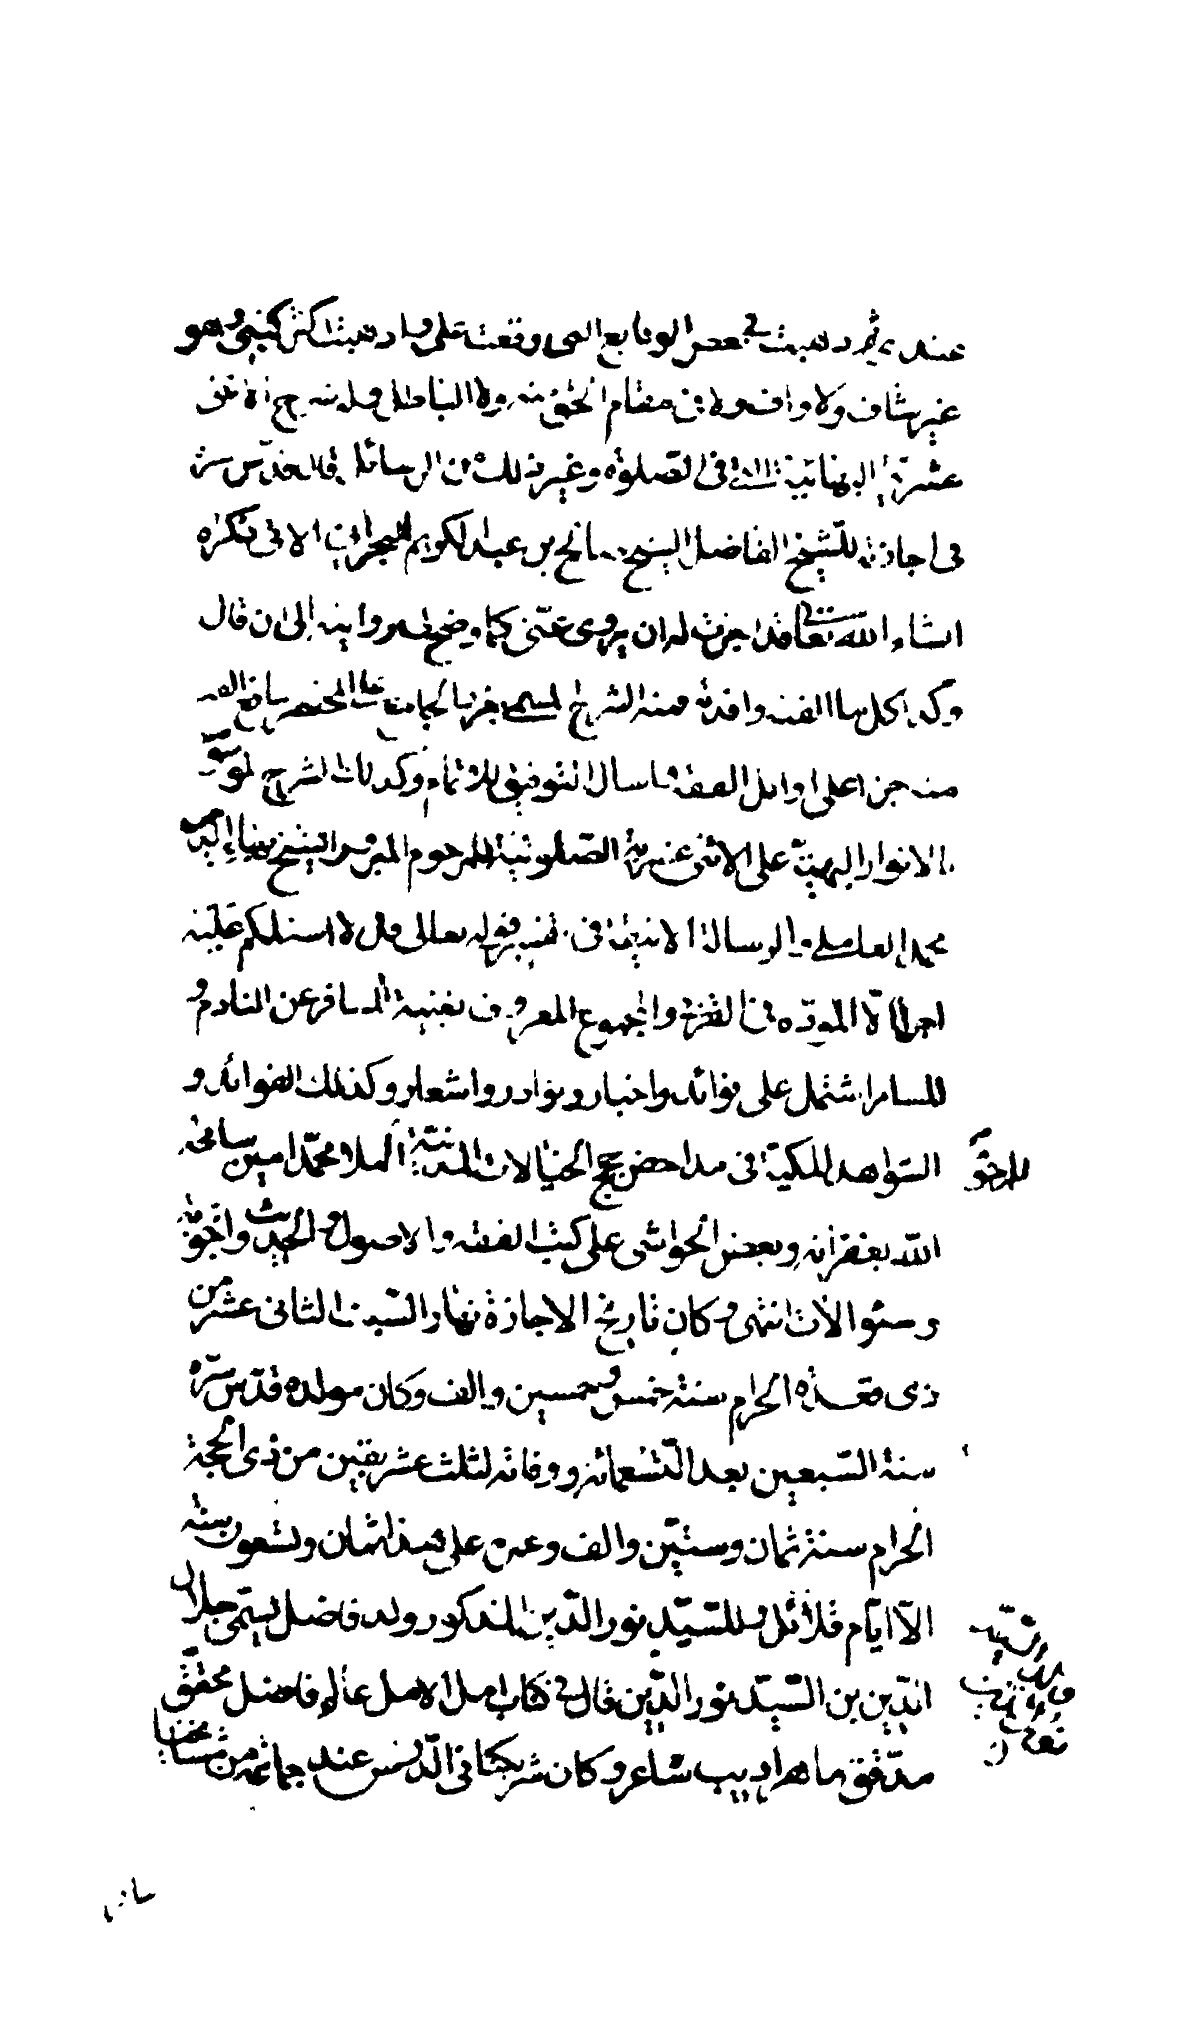 عندي ثم ذهبت في بعض الوقايع التي وقعت علي وذهبت اكثر كتبي وهو
غير شاف ولا واف ولا في مقام الحق منه ولا الباطل وله شرح
عشرية البهائية في الصلوة وغير ذلك من الرسائل قال قدس سره
في اجازته للشيخ الفاضل الشيخ صالح بن عبد الكريم البحراني الاتي ذكره
انشاء الله تعالى فقد اجزت له ان يروي عني كلما وضح لي روايته الى ان قال
وكذا كل ما الفته وافدته فمنه الشرح المسمى بالجامع على المختصر النافع
منه جزء اعلى اوايل الفقه اسال التوفيق للاتمام وكذلك الشرح الموسوم
بالانوار البهية على الاثنى عشرية الصلوتية للمرحوم المبرور الشيخ بهاء الدين
محمد العاملي والرسالة الانيقة في تفسير قوله تعالى قل لا اسئلكم عليه
اجرا الا المودة في القربى والمجموع المعروف بغنية المسافر عن المنادم و
المسامر اشتمل على فوائد واخبار ونوادر واشعار وكذلك الفوائد و
الشواهد المكية في مداحض حجج الخيالات المدنية الملا محمد امين سامحه
الله بغفرانه وبعض الحواشي على كتب الفقه والاصول والحديث واجوبة
وسئوالات انتهى وكان تاريخ الاجازة نهار السبت الثاني عشر من
ذي قعدة الحرام سنة خمس وخمسين والف وكان مولده قدس سره
سنة السبعين بعد التسعمائة ووفاته لثلث عشر بقين من ذي الحجة
الحرام سنة ثمان وستين والف وعمره على هذا ثمان وتسعون سنة
الا ايام قلائل وللسيد نور الدين المذكور ولد فاضل يسمى جلال
الدين بن السيد نور الدين قال في كتاب امل الامل عالم فاضل محقق
مدقق ماهر اديب شاعر وكان شريكنا في الدرس عند جماعة من مشايخنا
للمرحوم